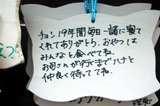 チョン19年間毎日一緒に寝て
くれてありがとう。おやつは
みんなと食べてね。
お母さんが行くまでハナと
仲良く待っててね。